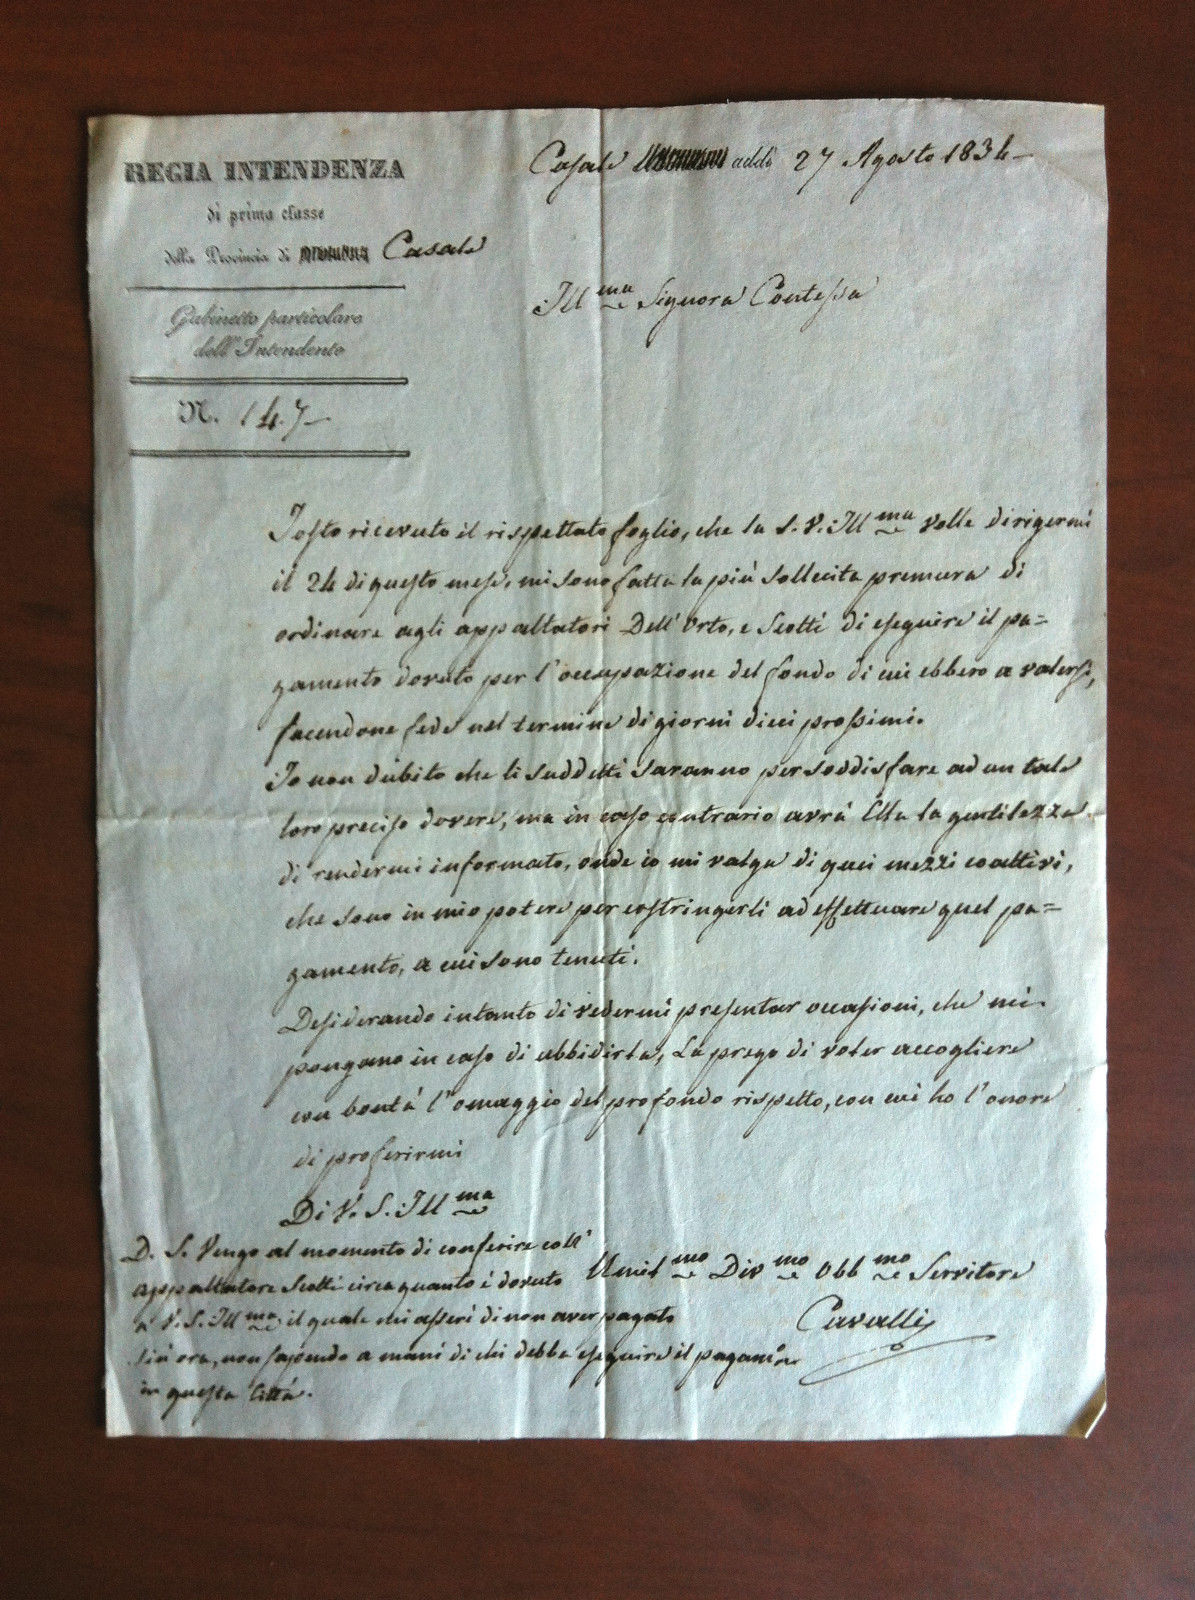 REGIA INTENDENZA
di prima classe
della Provincia di Casale
Gabinetto particolare
dell'Intendente
N. 147
Casale addì 27 Agosto 1834
Ill.ma Signora Contessa
Tosto ricevuto il rispettato foglio, che la S. V. Ill.ma volle dirigermi
il 24 di questo mese, mi sono fatta la più sollecita premura di
ordinare agli appaltatori Dell'Orto, e Scotti di eseguire il pa=
gamento dovuto per l'occupazione del fondo di cui ebbero a valersi,
facendone fede nel termine di giorni dieci prossimi.
Io non dubito che li suddetti saranno per soddisfare ad un tale
loro preciso dovere, ma in caso contrario avrà Ella la gentilezza
di rendermi informato, onde io mi valga di quei mezzi coattivi,
che sono in mio potere per costringerli ad effettuare quel pa=
gamento, a cui sono tenuti.
Desiderando intanto di vedermi presentar occasioni, che mi
pongano in caso di ubbidirla, La prego di voler accogliere
con bontà l'omaggio del profondo rispetto, con cui ho l'onore
di proferirmi
Di V. S. Ill.ma
Umil.mo Div.mo Obb.mo Servitore
Cavalli
D. S. Vengo al momento di conferire coll'
appaltatore Scotti circa quanto è dovuto
a V. S. Ill.ma il quale mi asserì di non aver pagato
sin ora, non sapendo a mani di chi debba eseguire il pagam.to
in questa Città.